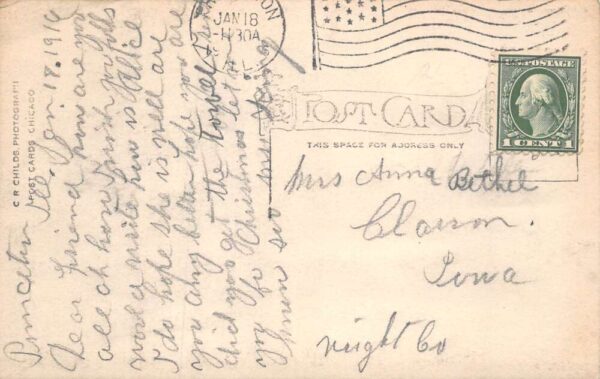 Princeton Ill. Jan 18. 1916
Dear Friend how are you
all at home I wish you folks
would write how is Alice
I do hope she is well are
you any better hope you are
did you get the towel I sent
you for Christmas let
know
JAN 18
11 30A
ILL.
POST CARD
THIS SPACE FOR ADDRESS ONLY
U.S. POSTAGE
1 CENT 1
C R CHILDS, PHOTOGRAPH
POST CARDS CHICAGO
Mrs Anna Bethel
Clarion
Iowa
Wright Co